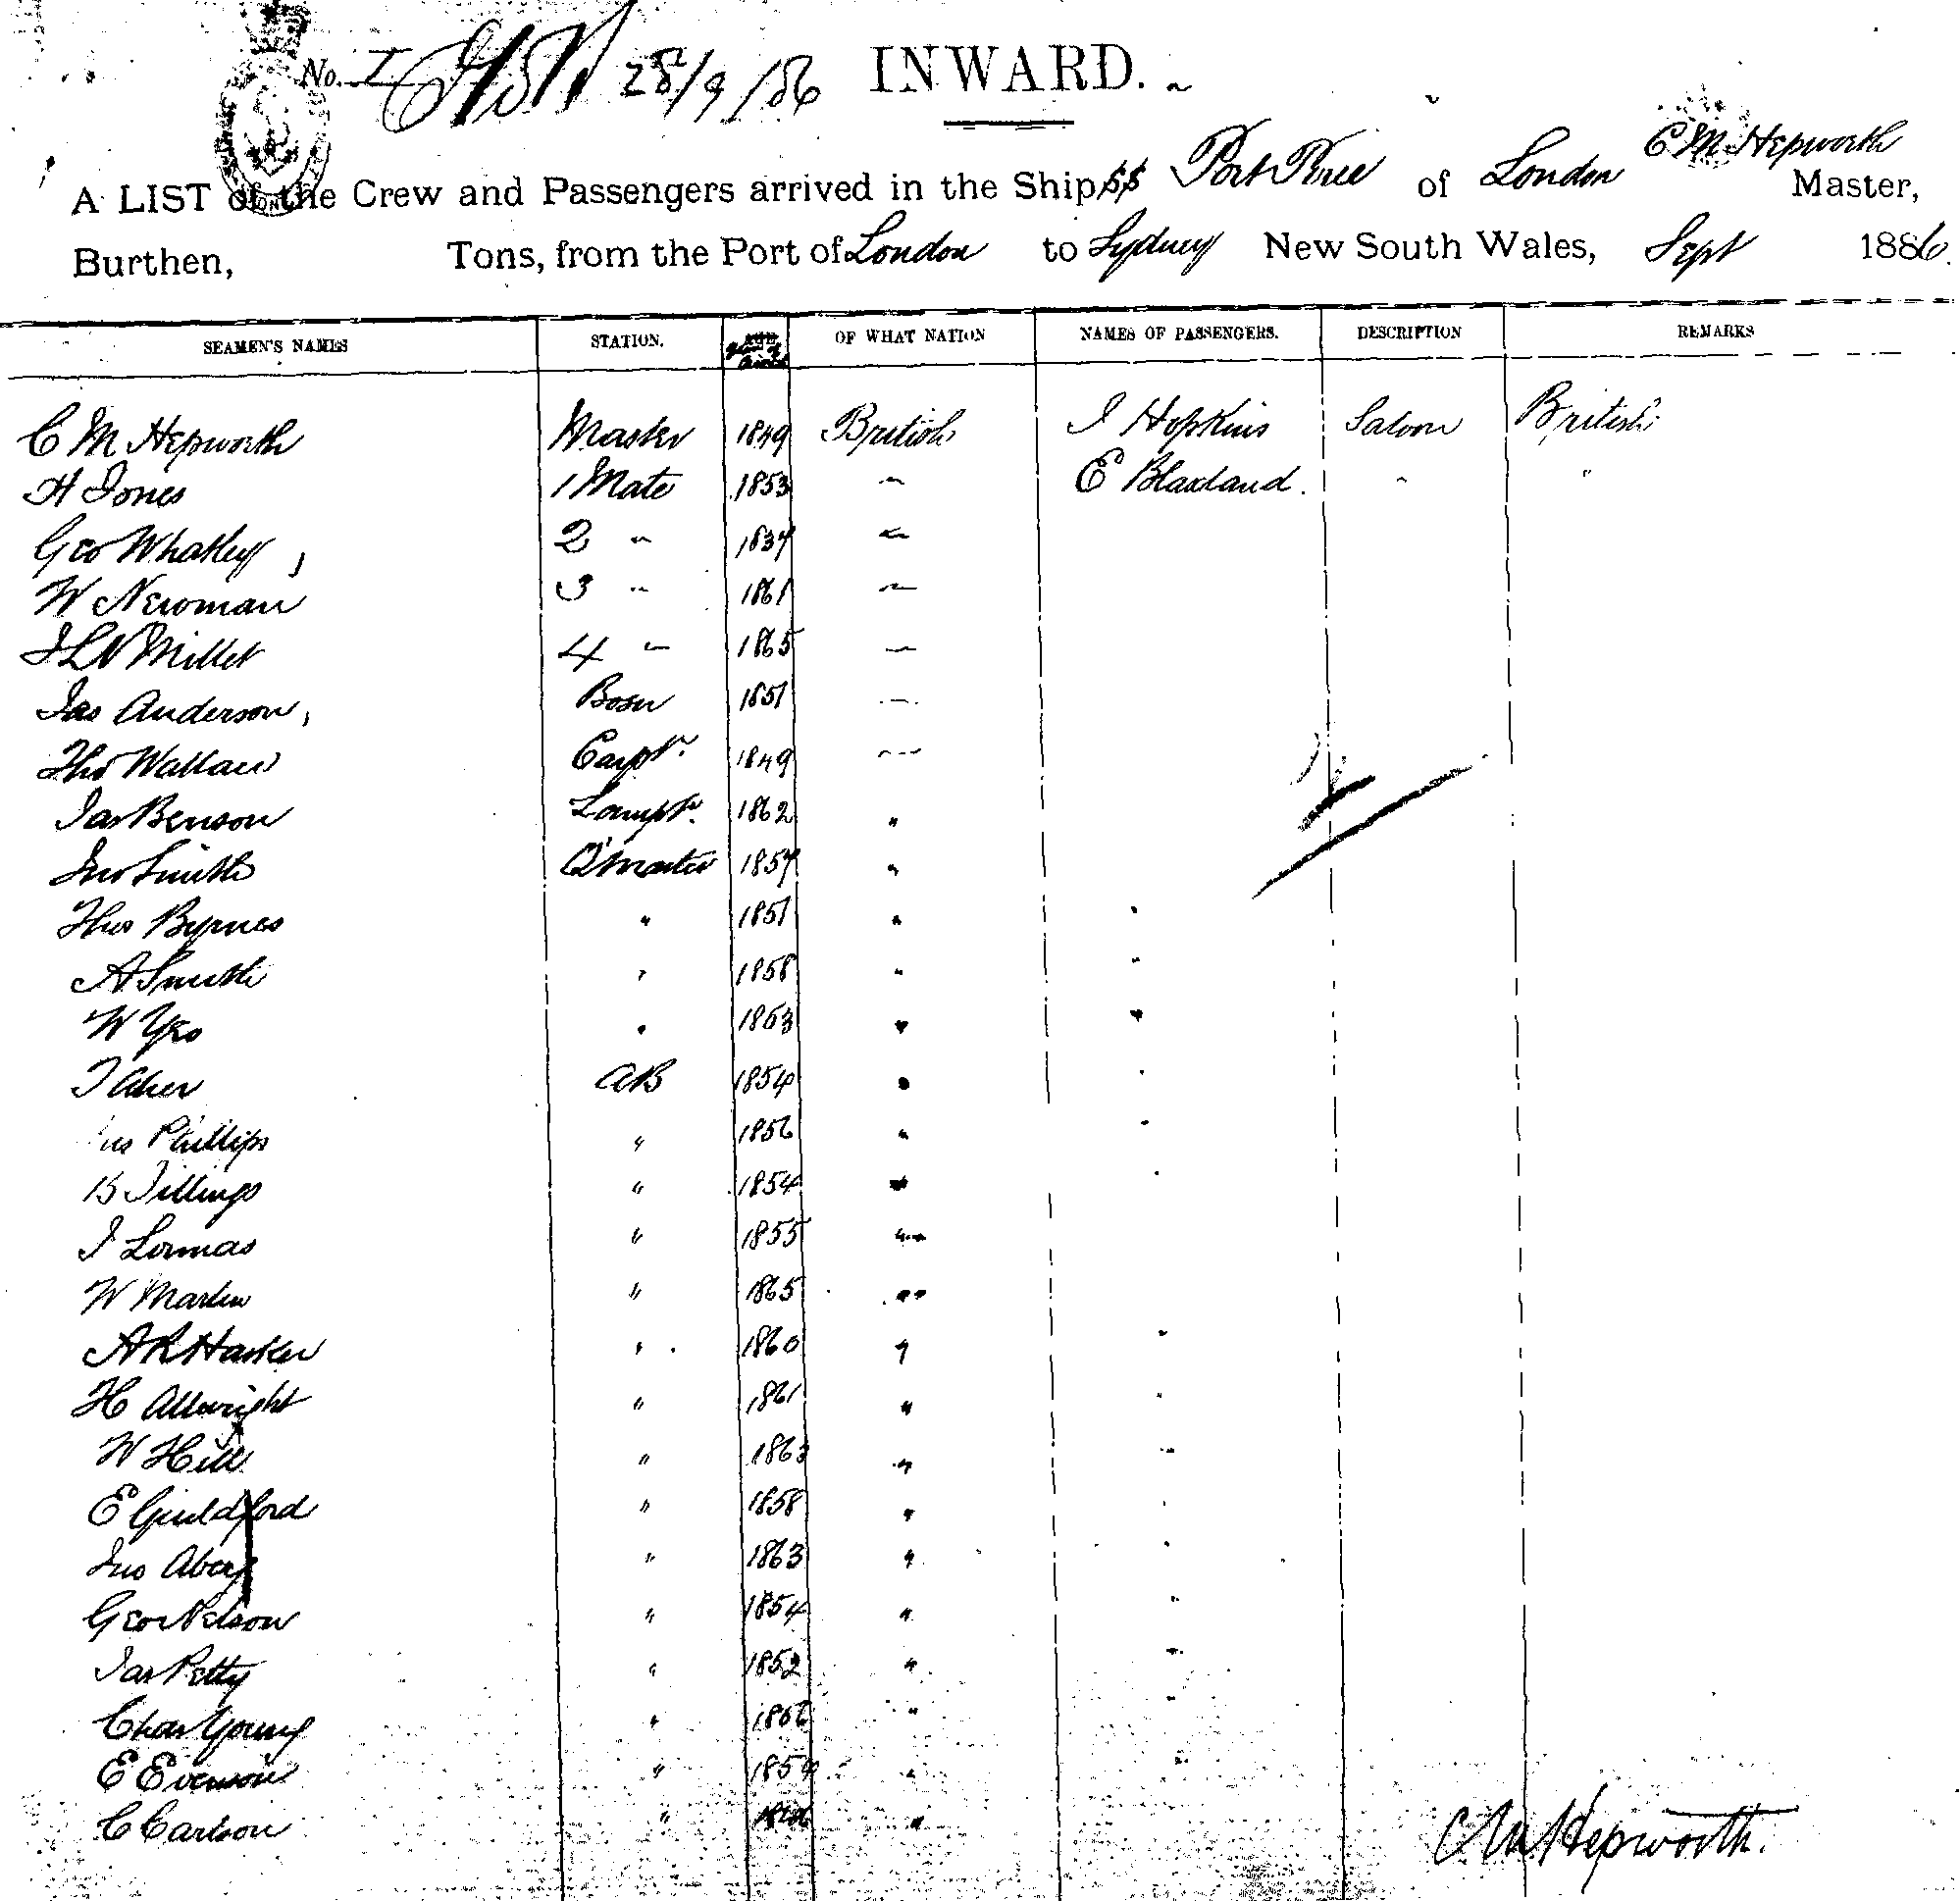 No. I 28/9/86 INWARD.
C M Hepworth
A LIST of the Crew and Passengers arrived in the Ship SS Port Pirie of London Master,
Burthen, Tons, from the Port of London to Sydney New South Wales, Sept 1886.
SEAMEN'S NAMES STATION. AGE Year of Birth OF WHAT NATION NAMES OF PASSENGERS. DESCRIPTION REMARKS
C M Hepworth Master 1849 British J Hopkins Saloon British
H Jones 1 Mate 1853 " E Blaxland. " "
Geo Whatley 2 " 1834 "
W Newman 3 " 1861 "
Millet 4 " 1865 "
Jas Anderson, Bosn 1851 "
Tho Wallace Carptr. 1849 "
Jas Benson Lamptr. 1862 "
Jno Smith Q'Master 1857 "
Thos Byrnes " 1851 "
A Smith " 1858 "
W Yeo " 1863 "
T Aher AB 1854 "
Phillips " 1856 "
B Tillings " 1854 "
J Lomas " 1855 "
W Martin " 1865 "
A R Harker " 1860 "
H Allwright " 1861 "
W Hill " 1863 "
E Guildford " 1858 "
Jno Aberg " 1863 "
Geo Nelson " 1854 "
Jas Petty " 1852 "
Chas Young " 1866 "
E Evenson " "
C Carlson " "
C M Hepworth.